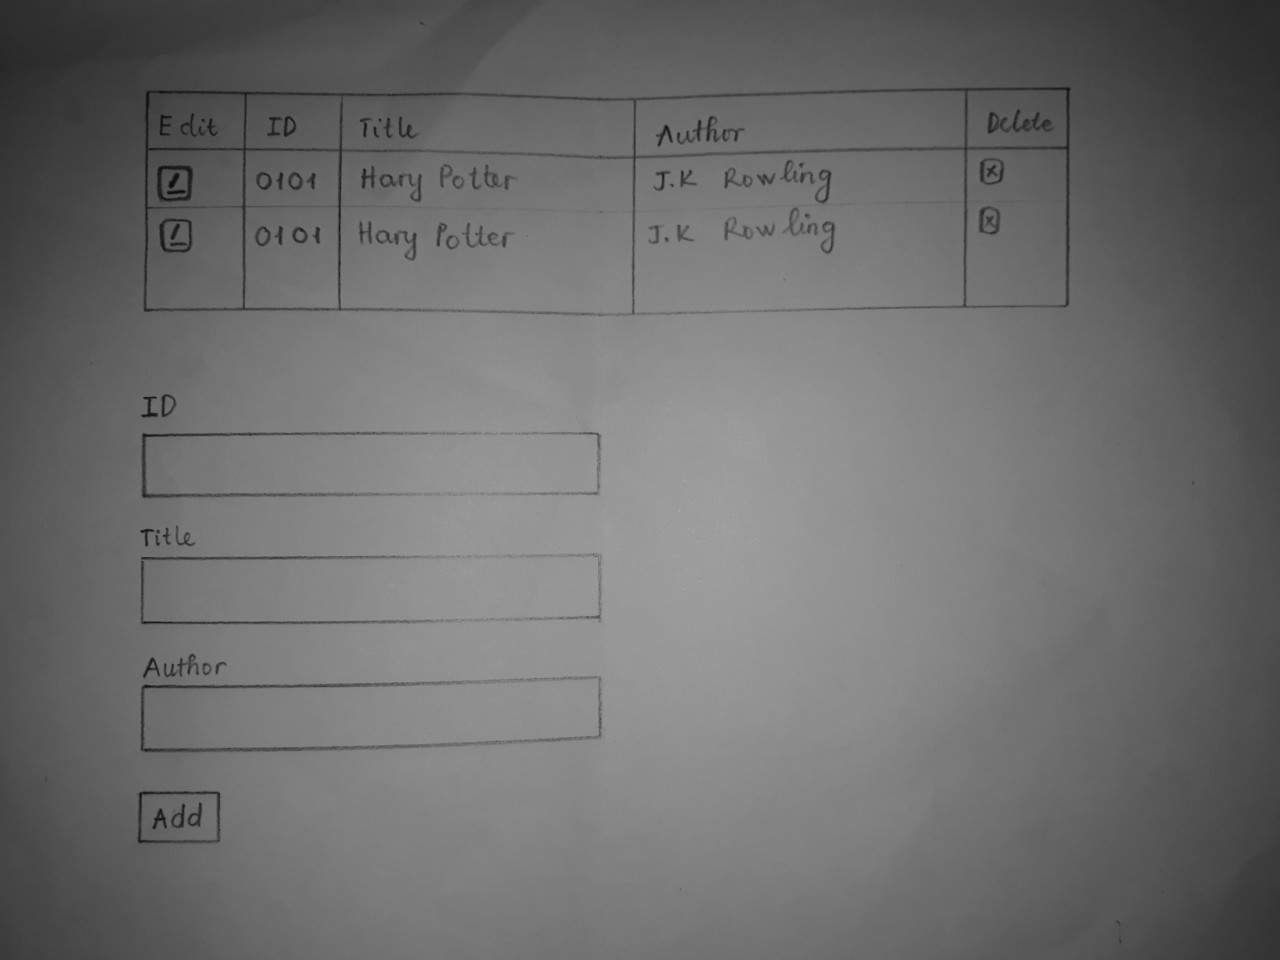 Edit ID Title Author Delete
0101 Hary Potter J.K Rowling
0101 Hary Potter J.K Rowling
ID
Title
Author
Add